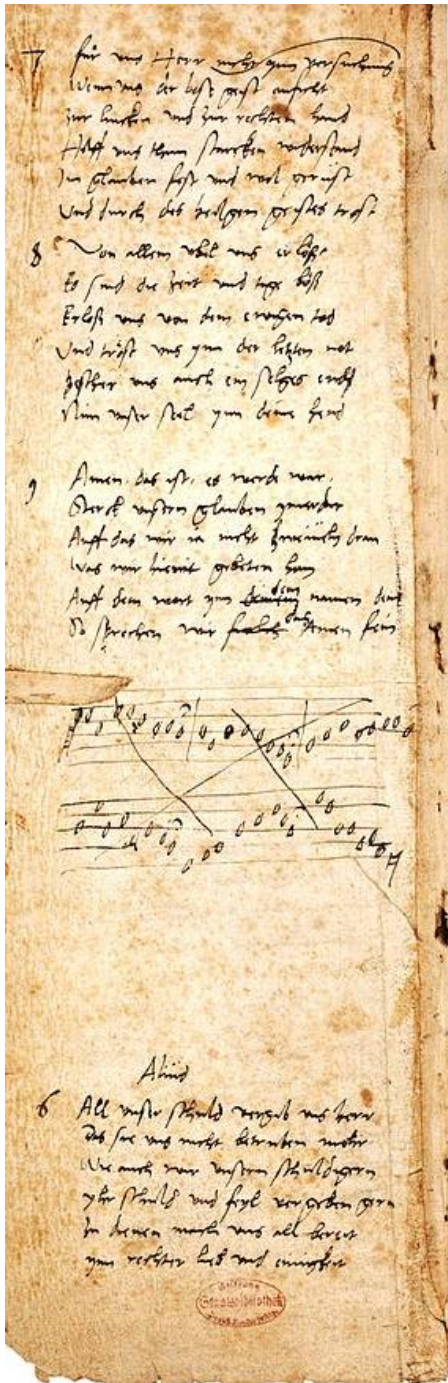 7 für uns Herr nicht ynn versuchung
Wenn uns der böse geist anficht
Zur lincken und zur rechten hand
Hilff uns thun starcken widerstand
Im glauben fest und wol gerüst
Und durch des heilgen geistes trost
8 Von allem ubel uns erlöse
Es sind die zeit und tage böß
Erlöß uns von dem ewigen tod
Und tröst uns ynn der letzten not
uns auch ein selges end
Nim unser seel ynn deine hend
9 Amen. das ist, es werde war.
Sterck unsern glauben ymerdar
Auff das wir ia nicht dran
Was wir hiemit gebeten han
Auff dein wort ynn dem namen dein
So sprechen wir das Amen fein
Aliud
6 All unser schuld vergib uns herr
Das sie uns nicht betruben mehr
Wie auch wir unsern schuldigern
yhr schuld und feyl vergeben gern
Zu dienen mach uns all bereit
ynn rechter lieb und einigkeit
Stiftung
Staatsbibliothek